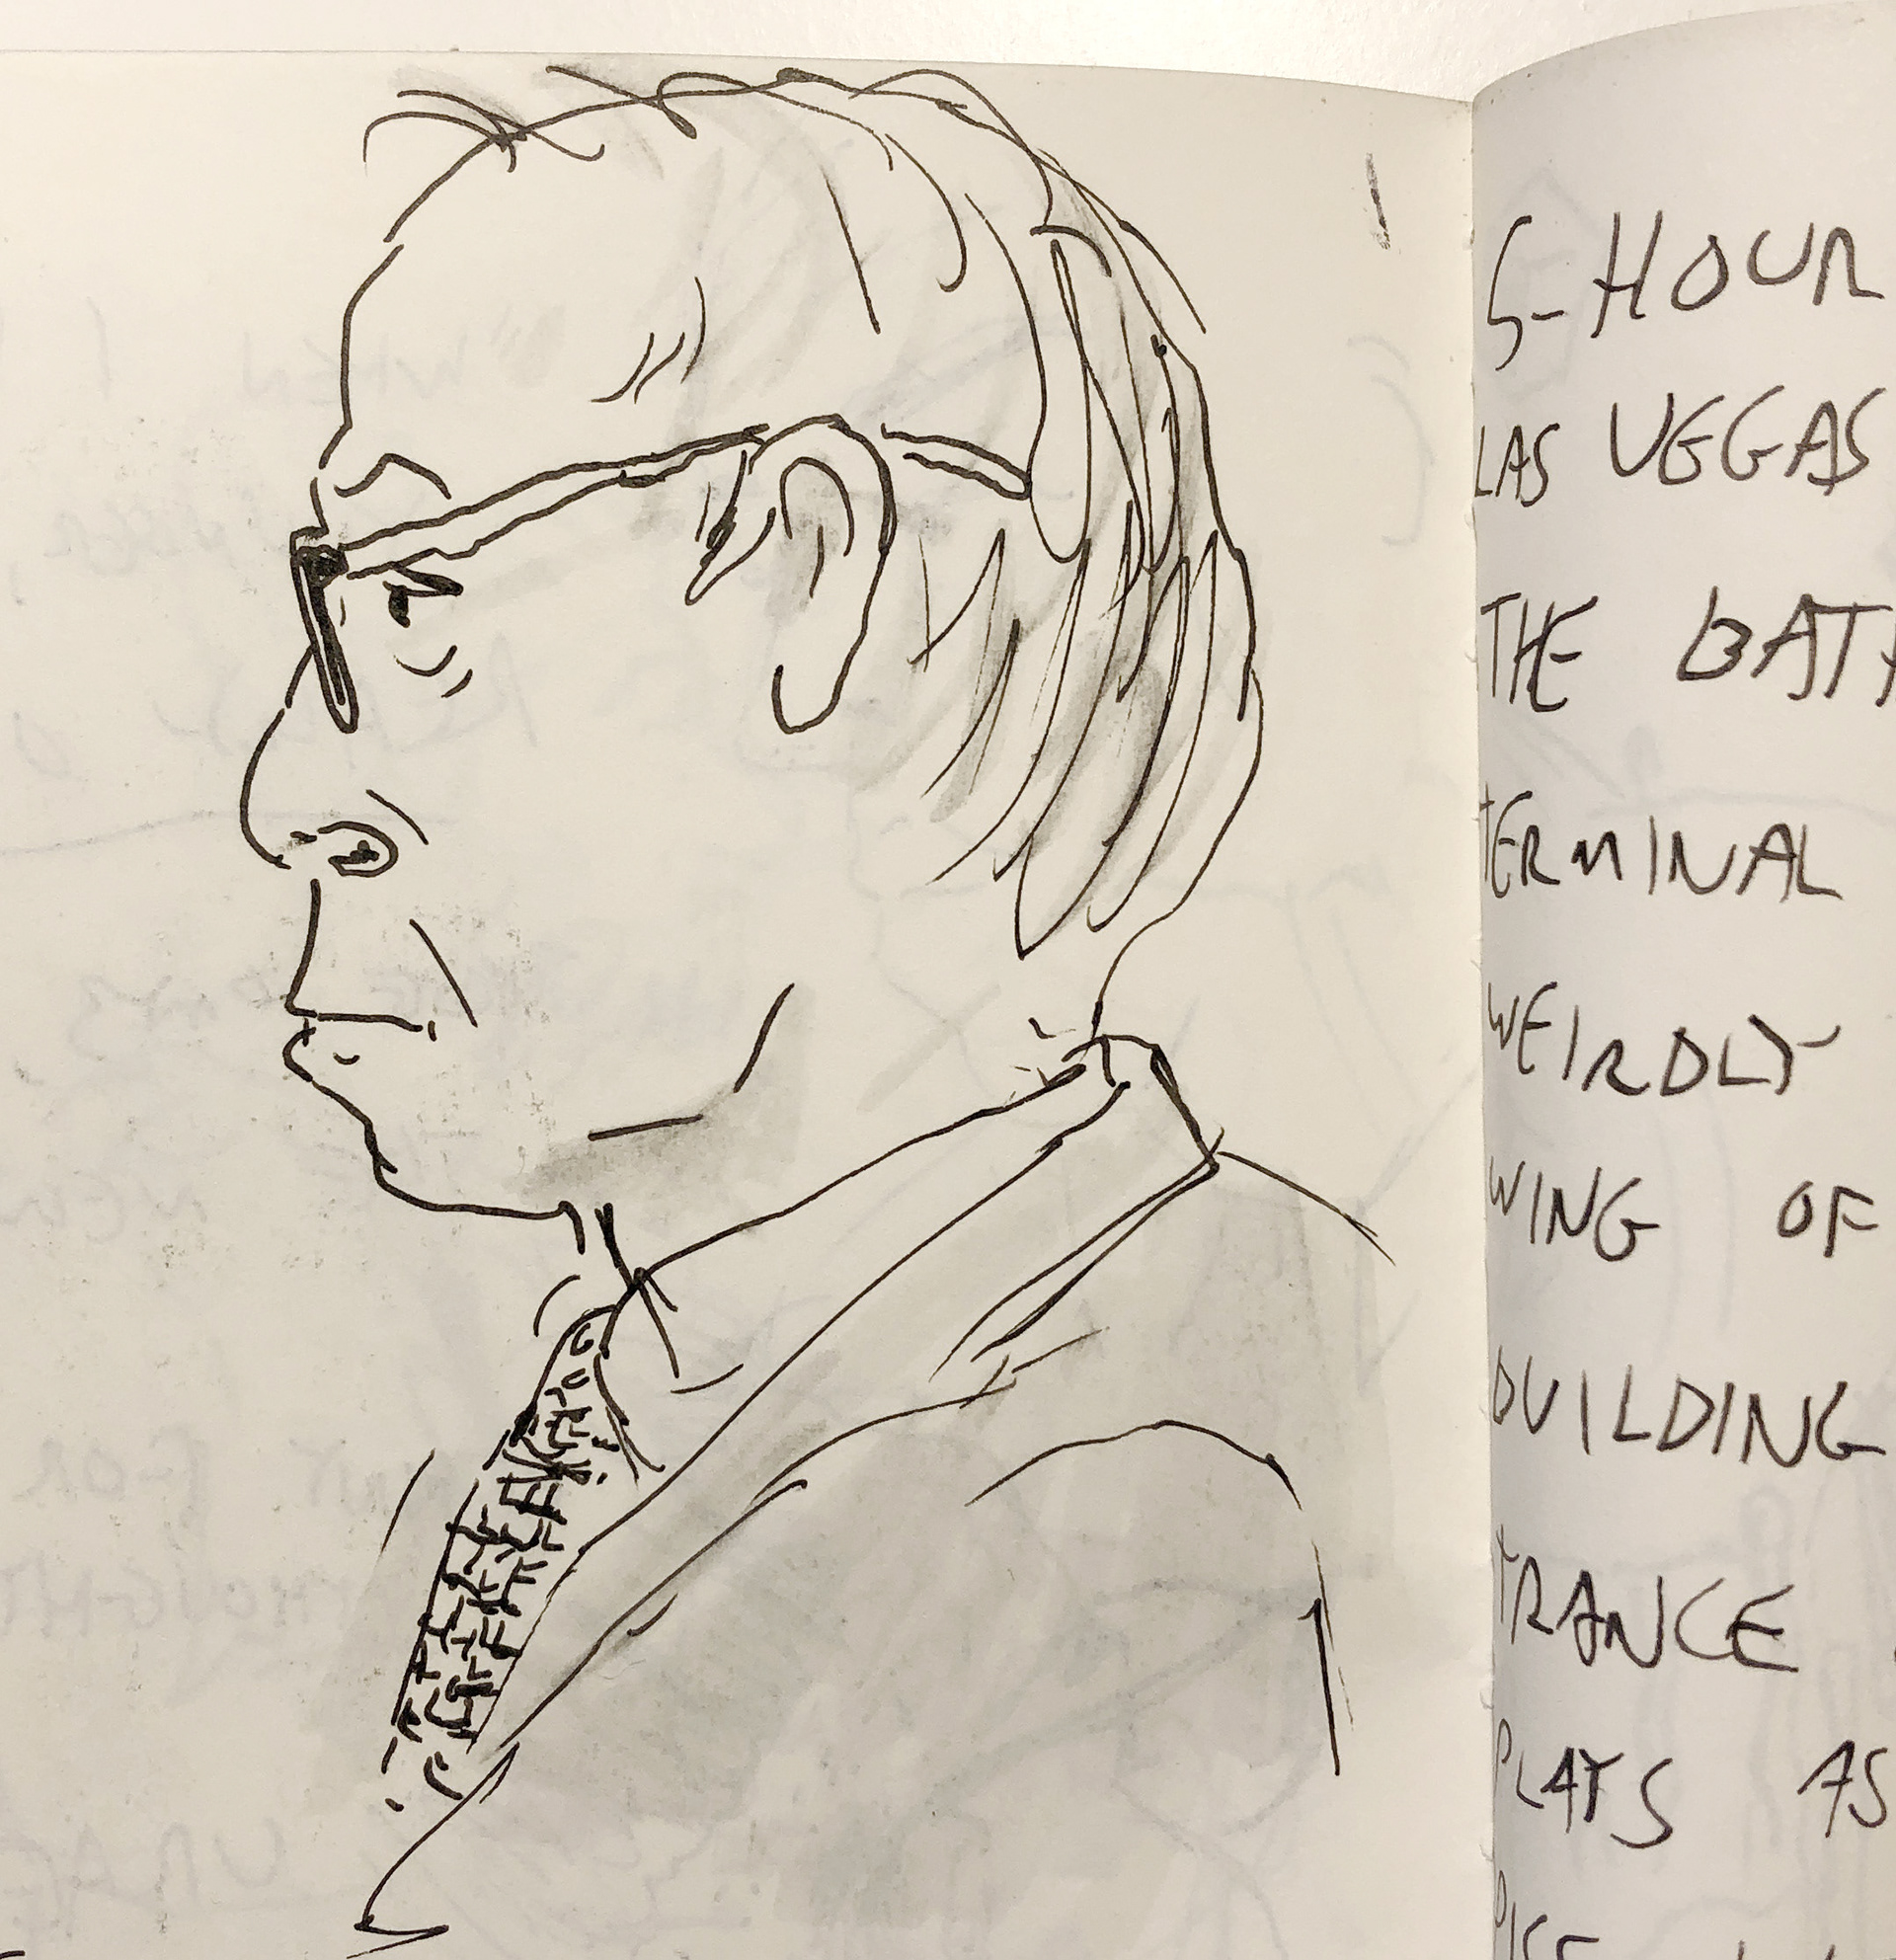 5-HOUR
LAS VEGAS
THE
TERMINAL
WEIRDLY
WING OF
BUILDING
TRANCE
PLAYS AS